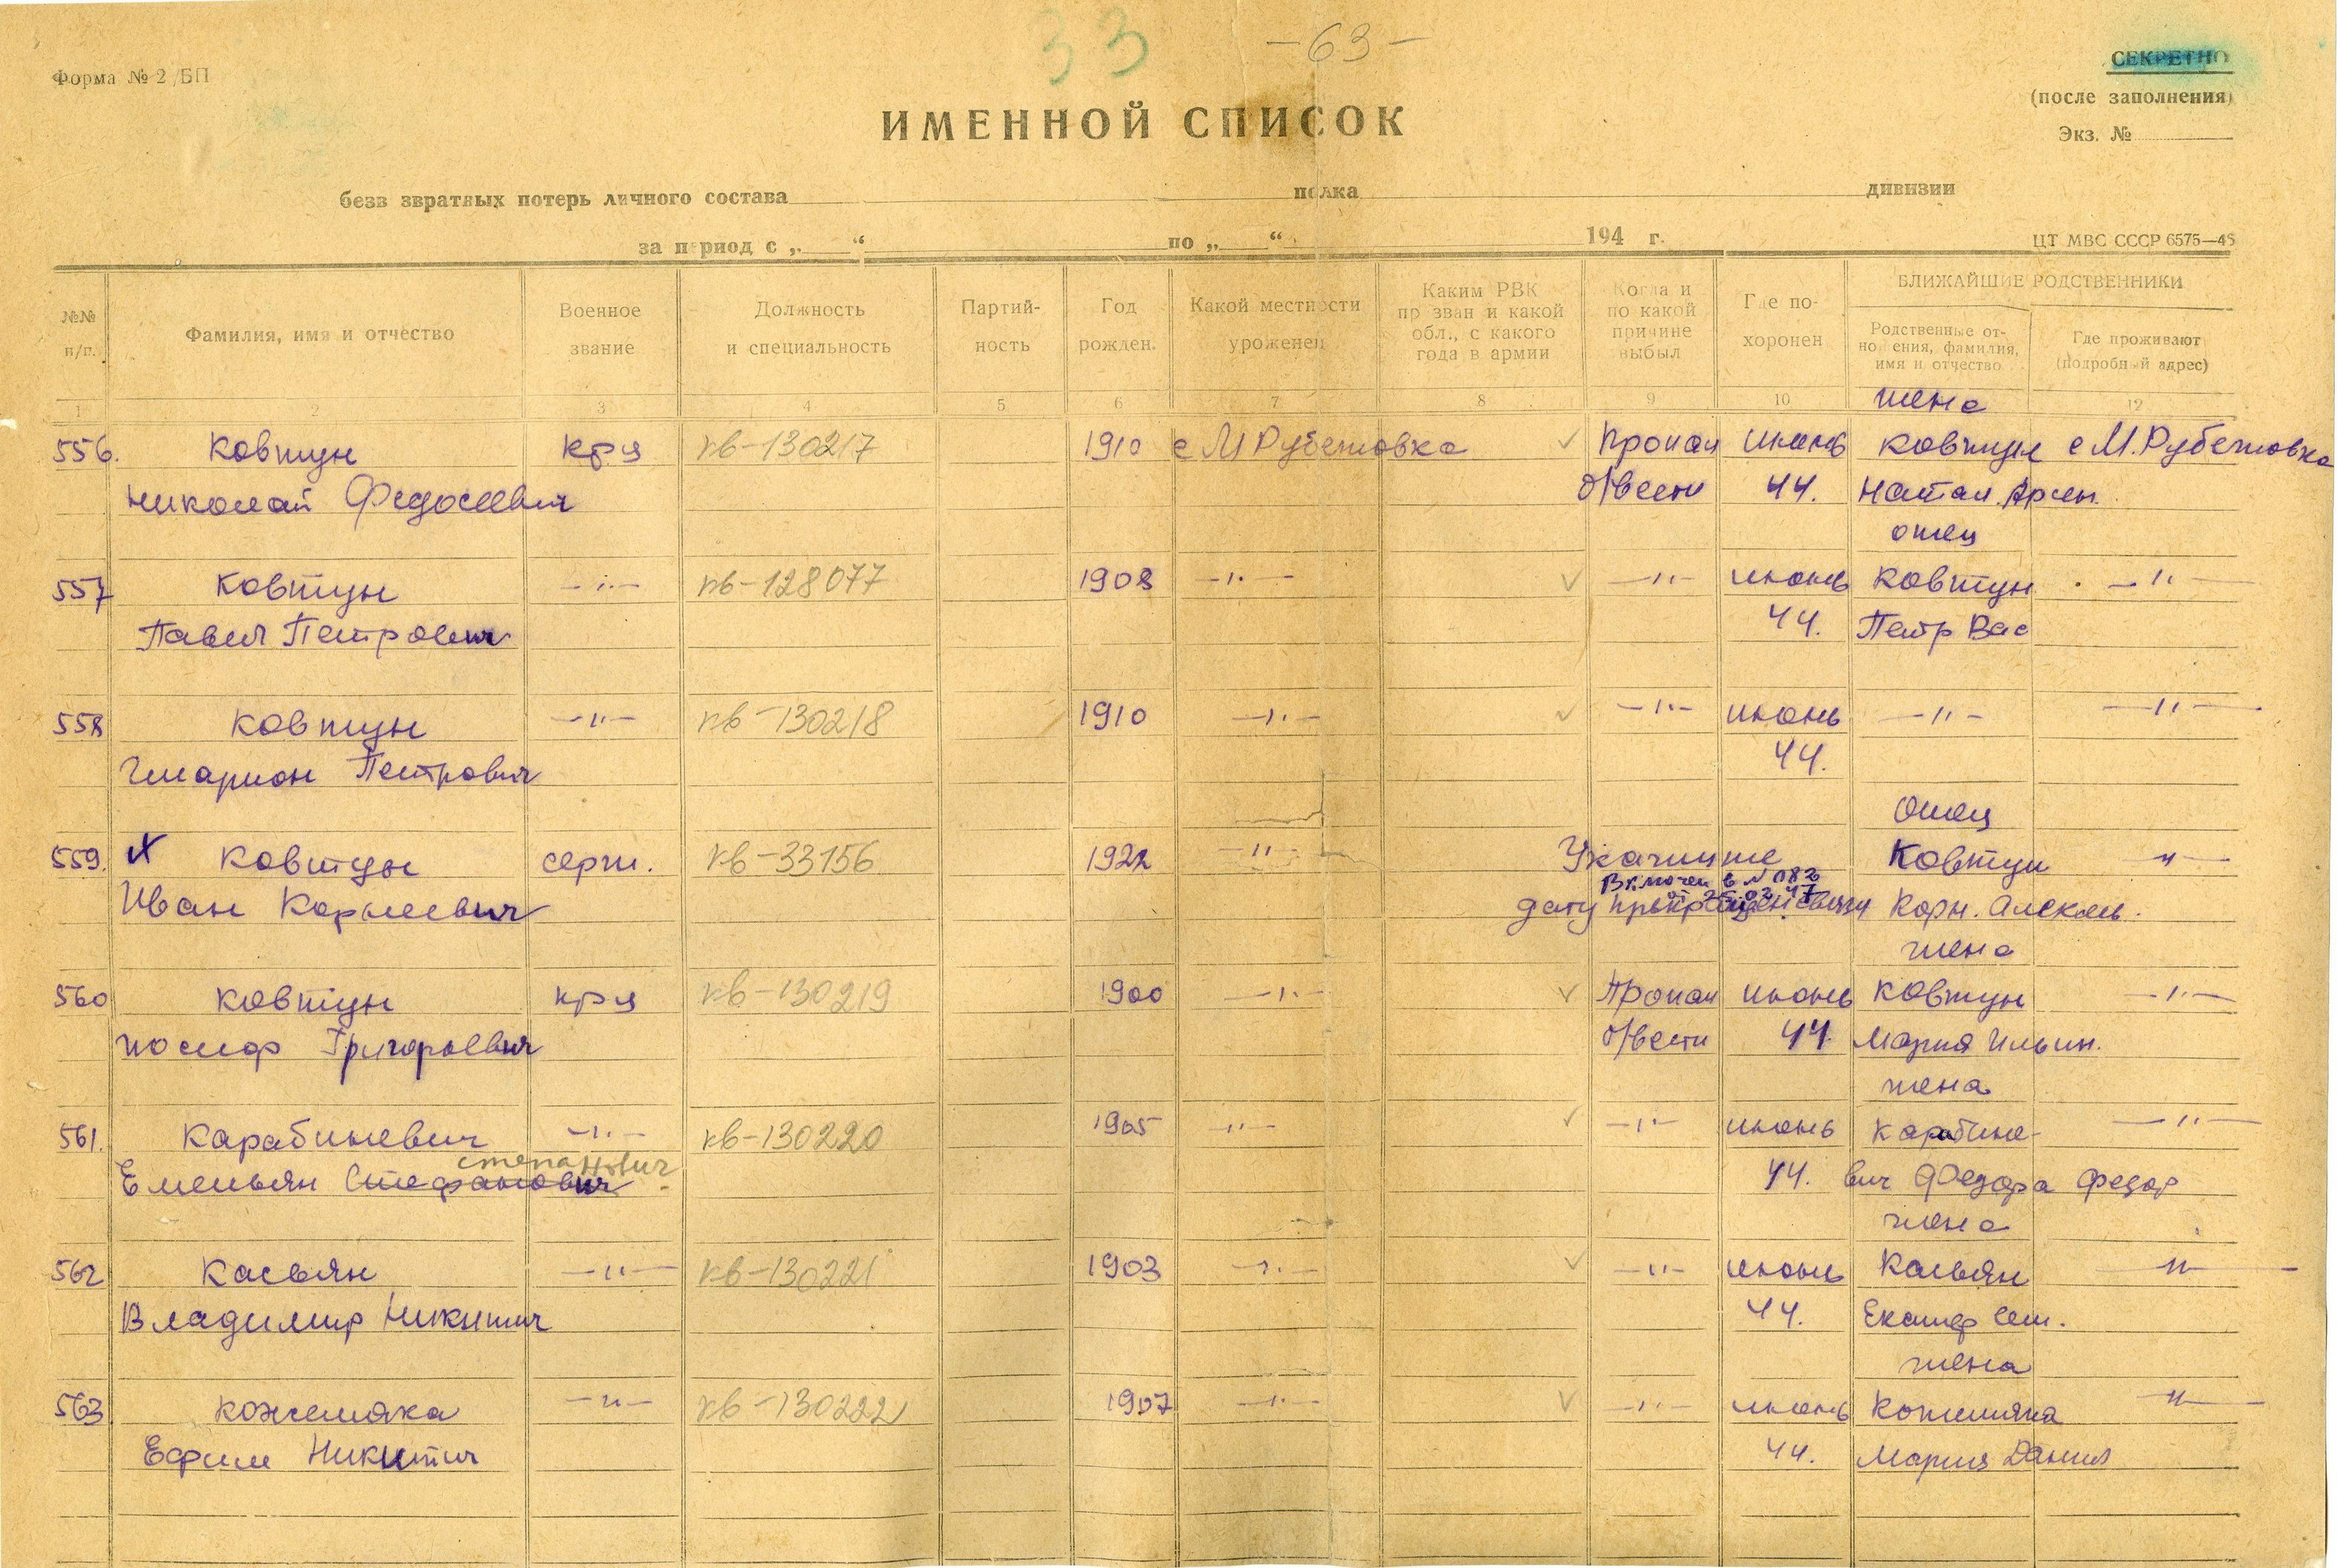 33 -63-
Форма № 2/БП
СЕКРЕТНО
(после заполнения)
Экз. №
ИМЕННОЙ СПИСОК
безв звратных потерь личного состава полка дивизии
за период с „ “ по „ “ 194 г.
ЦТ МВС СССР 6575—45
№№ п/п.
Фамилия, имя и отчество
Военное звание
Должность и специальность
Партий-ность
Год рожден.
Какой местности уроженец
Каким РВК пр зван и какой обл., с какого года в армии
Когда и по какой причине выбыл
Где по-хоронен
БЛИЖАЙШИЕ РОДСТВЕННИКИ
Родственные от-но ения, фамилия, имя и отчество
Где проживают (подробный адрес)
1 2 3 4 5 6 7 8 9 10 12
жена
556. Ковтун кр-ц кв-130217 1910 с М Рубежовка ✓ Пропал июнь Ковтун с М. Рубежовка
Николай Федосеевич б/вести 44. Натал. Арсен.
отец
557 Ковтун —"— кв-128077 1908 —"— ✓ —"— июнь Ковтун —"—
Павел Петрович 44. Петр Вас
558 Ковтун —"— кв-130218 1910 —"— ✓ —"— июнь —"— —"—
Иларион Петрович 44.
отец
559. х Ковтун серж. кв-33156 1922 —"— Укажите Ковтун —"—
Включен в № 083
Иван Корнеевич дату прекращен связи Корн. Алексеев.
жена
560 Ковтун кр-ц кв-130219 1900 —"— ✓ Пропал июнь Ковтун —"—
Иосиф Григорьевич б/вести 44. Мария Ильин.
жена
561. Карабиневич —"— кв-130220 1905 —"— ✓ —"— июнь Карабине- —"—
степанович
Емельян Стефанович 44. вич Федора Федор
жена
562 Касьян —"— кв-130221 1903 —"— ✓ —"— июнь Касьян —"—
Владимир Никитич 44. Екатер Сем.
жена
563 Кожемяка —"— кв-130222 1907 —"— ✓ —"— июнь Кожемяка —"—
Ефим Никитич 44. Мария Данил